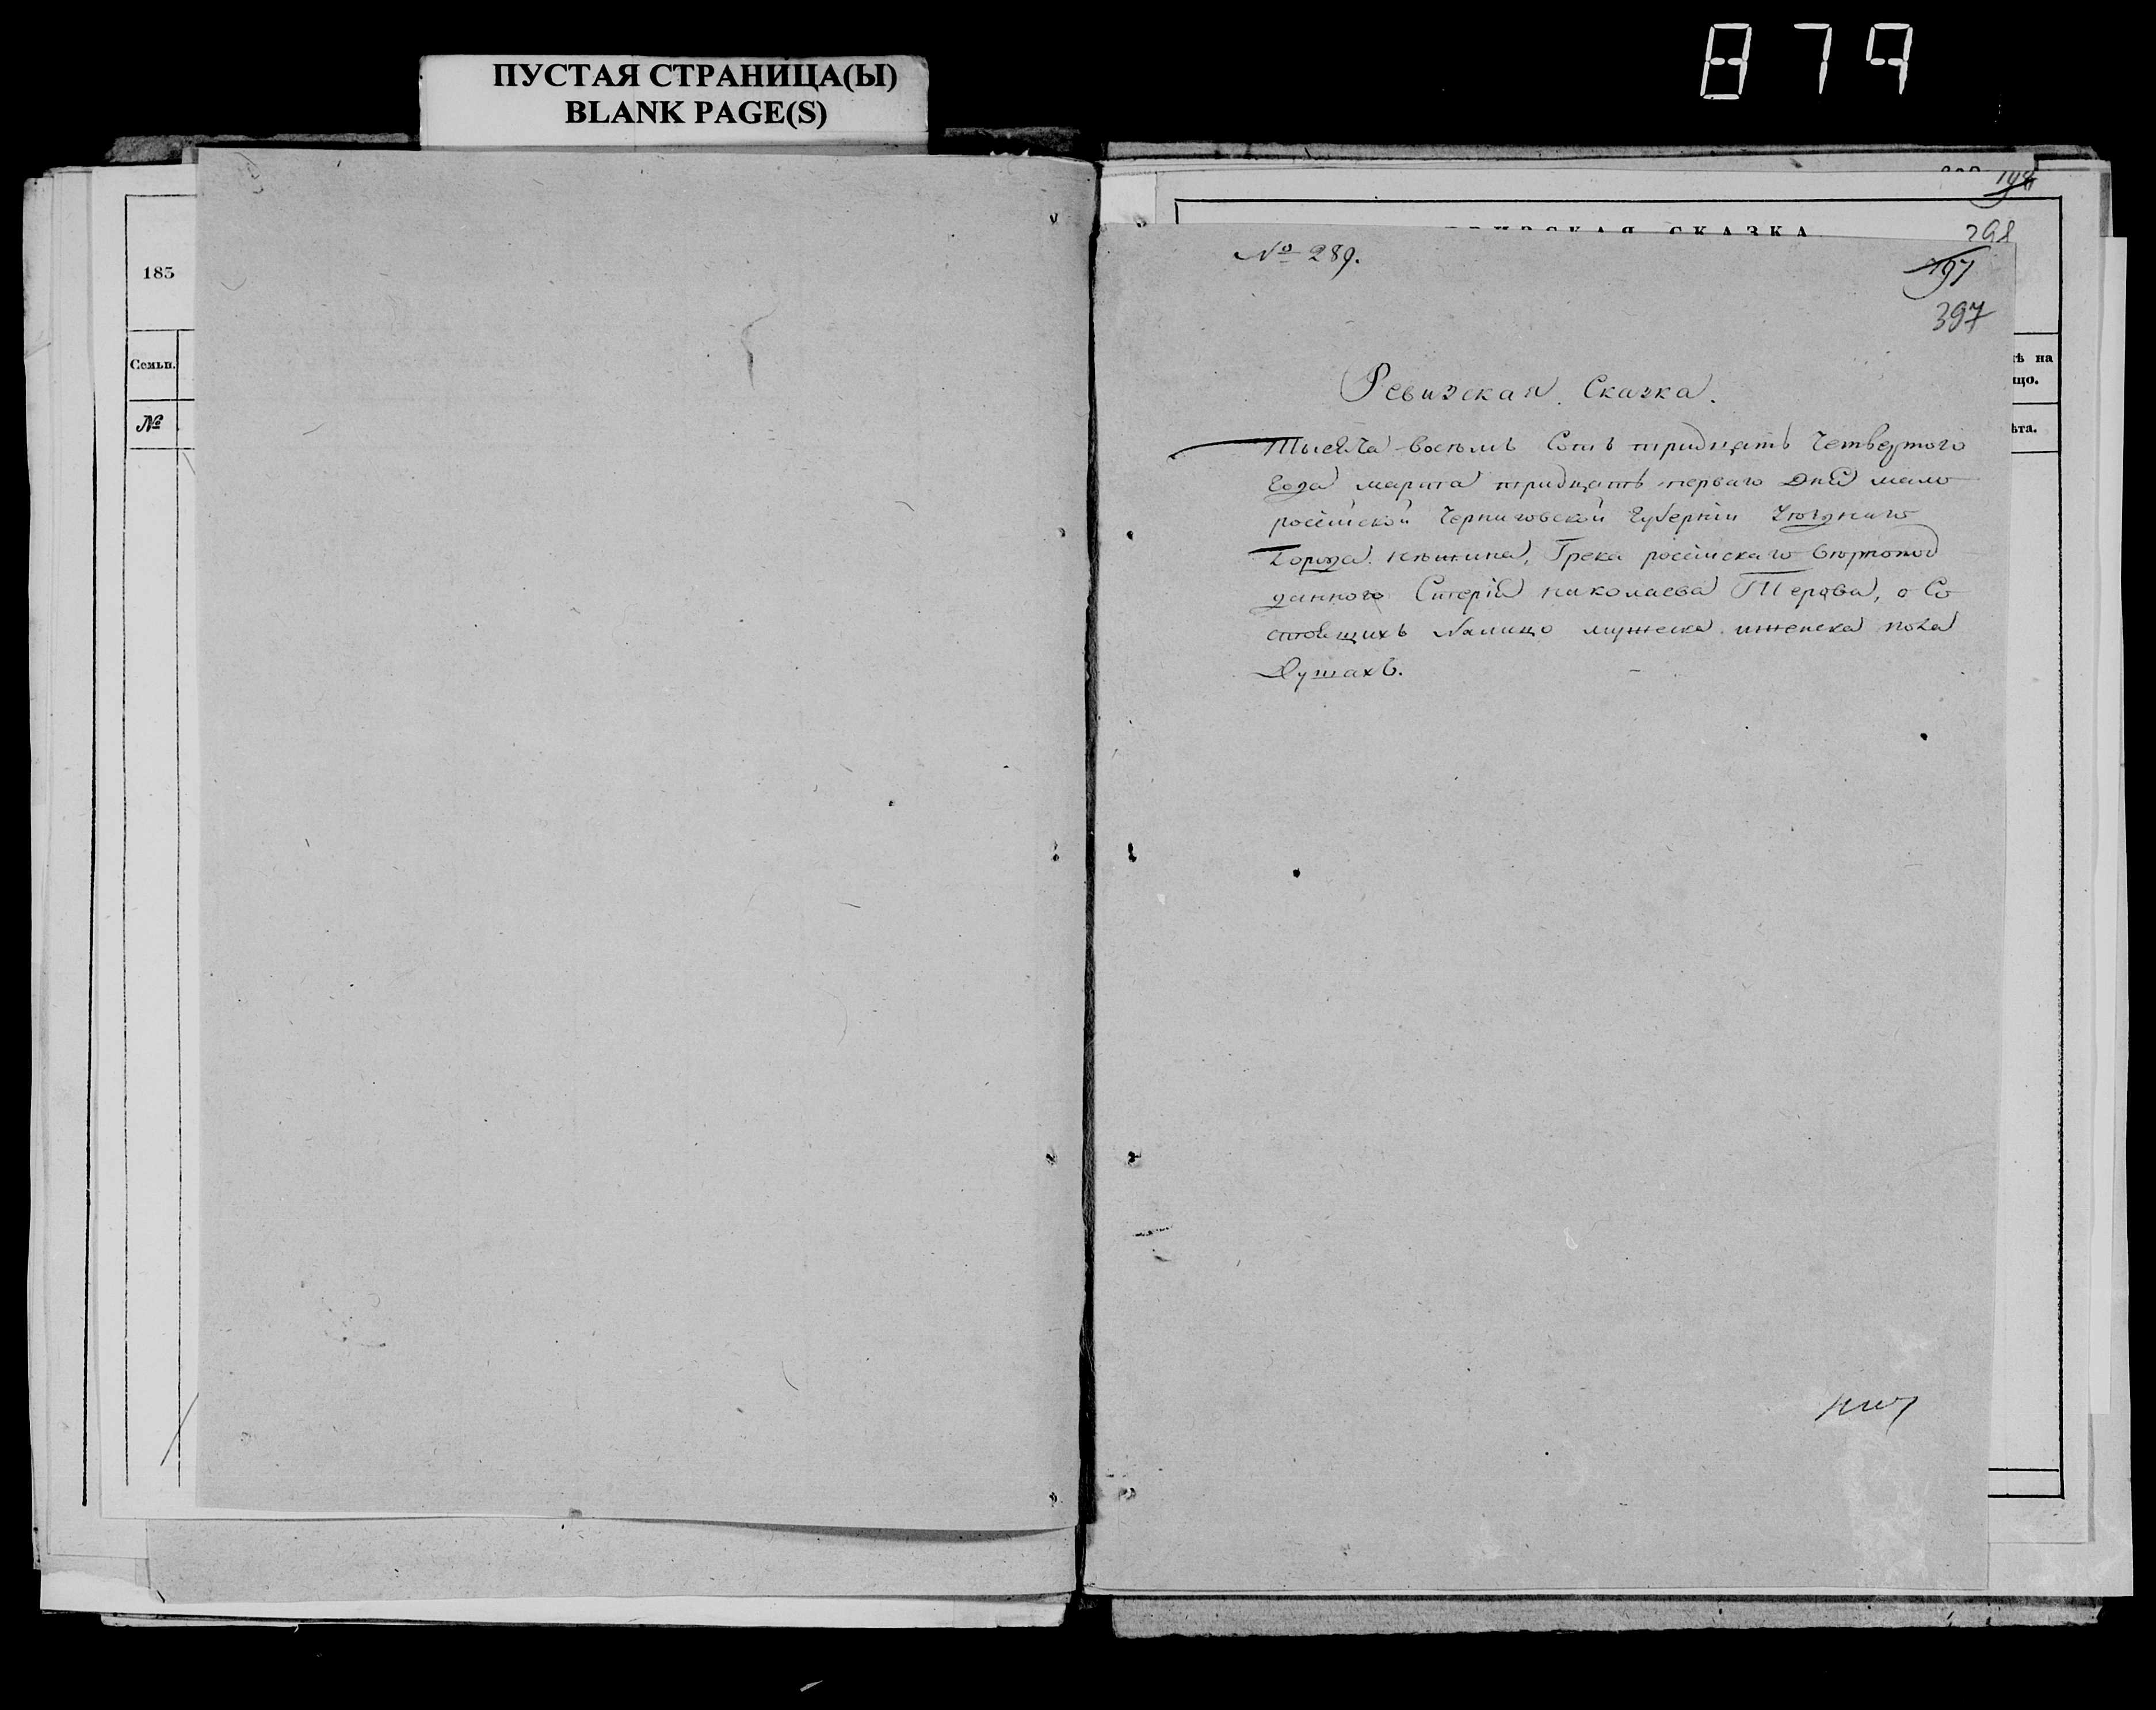 879
ПУСТАЯ СТРАНИЦА(Ы)
BLANK PAGE(S)
185
Семьи.
№
198
СКАЗКА
298
ѣ на
цо.
ѣта.
№ 289.
197
397
Ревизская Сказка.
Тысяча восемь Сотъ тридцать Четвертого
Года марта тридцать перваго Дня мало
росїйской Черниговской Губернїи
Города нѣжина, Грека росїйскаго
данного Стерїя николаева Терова, о Со
стоящихъ Налицо мужеска иженска пола
Душахъ.